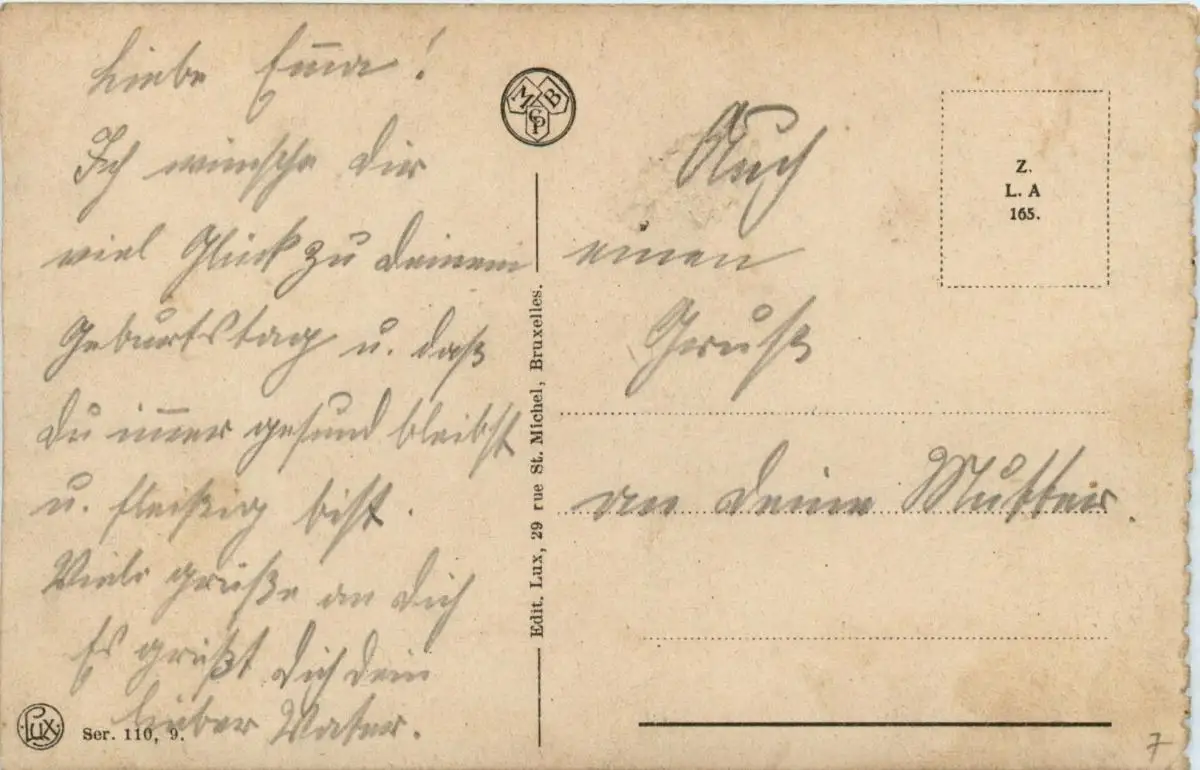 Liebe Emma!
Ich wünsche dir
viel Glück zu deinem
Geburtstag u. daß
du immer gesund bleibst
u. fleißig bist.
Viele grüße an dich
Es grüßt dich dein
lieber Vater.
Lux
Ser. 110, 9.
M B
C P
Edit. Lux, 29 rue St. Michel, Bruxelles.
Z.
L. A
165.
Auch
einen
Gruß
an deine Mutter.
7